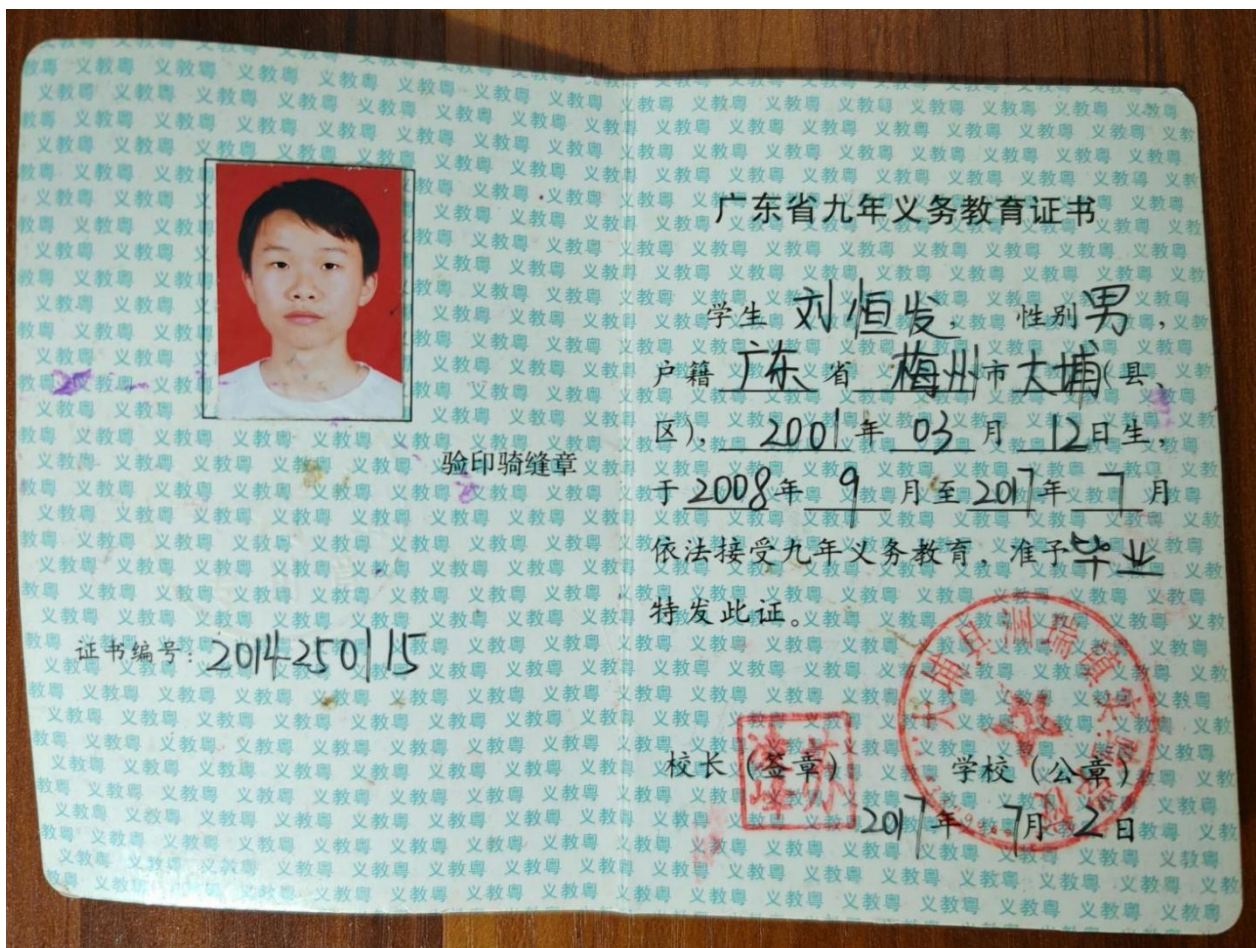 验印骑缝章
证书编号：2014250115
广东省九年义务教育证书
学生 刘恒发， 性别 男，
户籍 广东 省 梅州 市 大埔（县、
区），2001 年 03 月 12 日生，
于 2008 年 9 月至 2017 年 7 月
依法接受九年义务教育，准予 毕业
特发此证。
校长（签章） 学校（公章）
2017 年 7 月 2 日
大埔县洲瑞黄